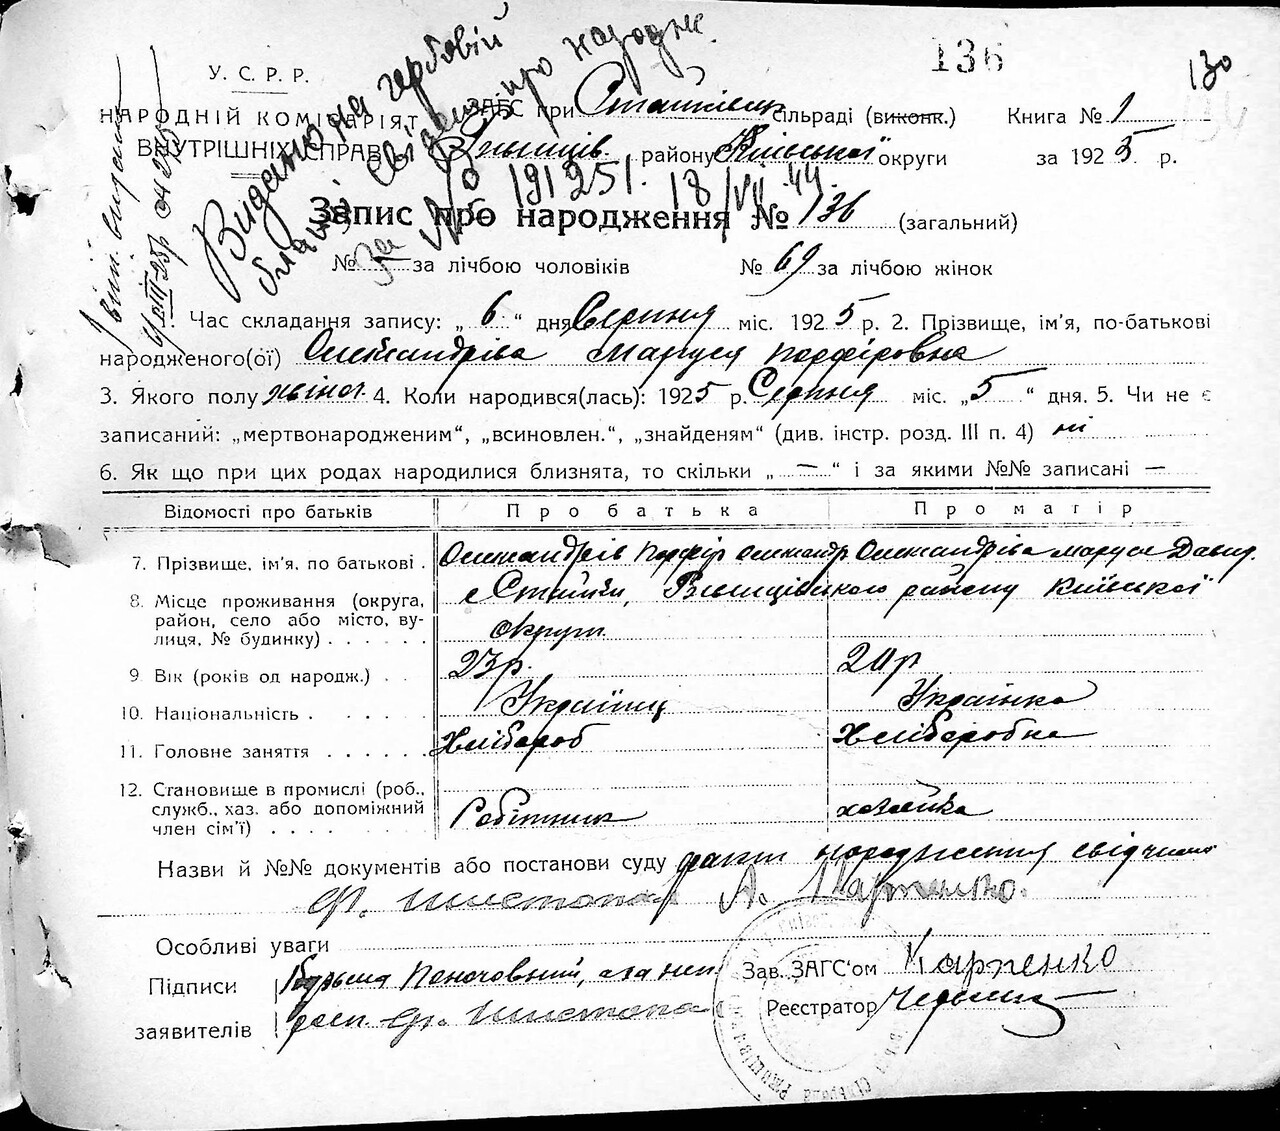 136
130
У. С. Р. Р.
НАРОДНІЙ КОМІСАРІЯТ
ВНУТРІШНІХ СПРАВ
ЗАГС при сільраді (виконк.) Книга № 1
району Київської округи за 1925 р.
Видано на гербовій
бланці свідоцтво про народж.
за № 191251. 18/VII 44.
Запис про народження № 136 (загальний)
№ — за лічбою чоловіків № 69 за лічбою жінок
1. Час складання запису: „ 6 “ дня Серпня міс. 1925 р. 2. Прізвище, ім'я, по-батькові
народженого(ої) Олександріва Маруся Порфировна
3. Якого полу жіноч. 4. Коли народився(лась): 1925 р. Серпня міс. „ 5 “ дня. 5. Чи не є
записаний: „мертвонародженим“, „всиновлен.“, „знайденям“ (див. інстр. розд. III п. 4) ні
6. Як що при цих родах народилися близнята, то скільки „ — “ і за якими №№ записані —
Відомості про батьків Про батька Про матір
7. Прізвище, ім'я, по батькові . Олександрів Порфір Олександр. Олександріва Маруся Давид.
8. Місце проживання (округа, район, село або місто, вулиця, № будинку) . . . . . с Стайки, Ржищівського району Київської
округи
9 Вік (років од народж.) . . 23 р. 20 р
10. Національність . . . . . . Українц Українка
11. Головне заняття . . . . . Хлібороб Хлібаробка
12. Становище в промислі (роб., служб., хаз. або допоміжний член сім'ї) . . . . . . . Робітник хазяйка
Назви й №№ документів або постанови суду факт народження свідчими
Ф. Шистопал А. Карпенко.
Особливі уваги
Підписи
заявителів
Ф. Шистопал
Зав. ЗАГС'ом Карпенко
Реєстратор